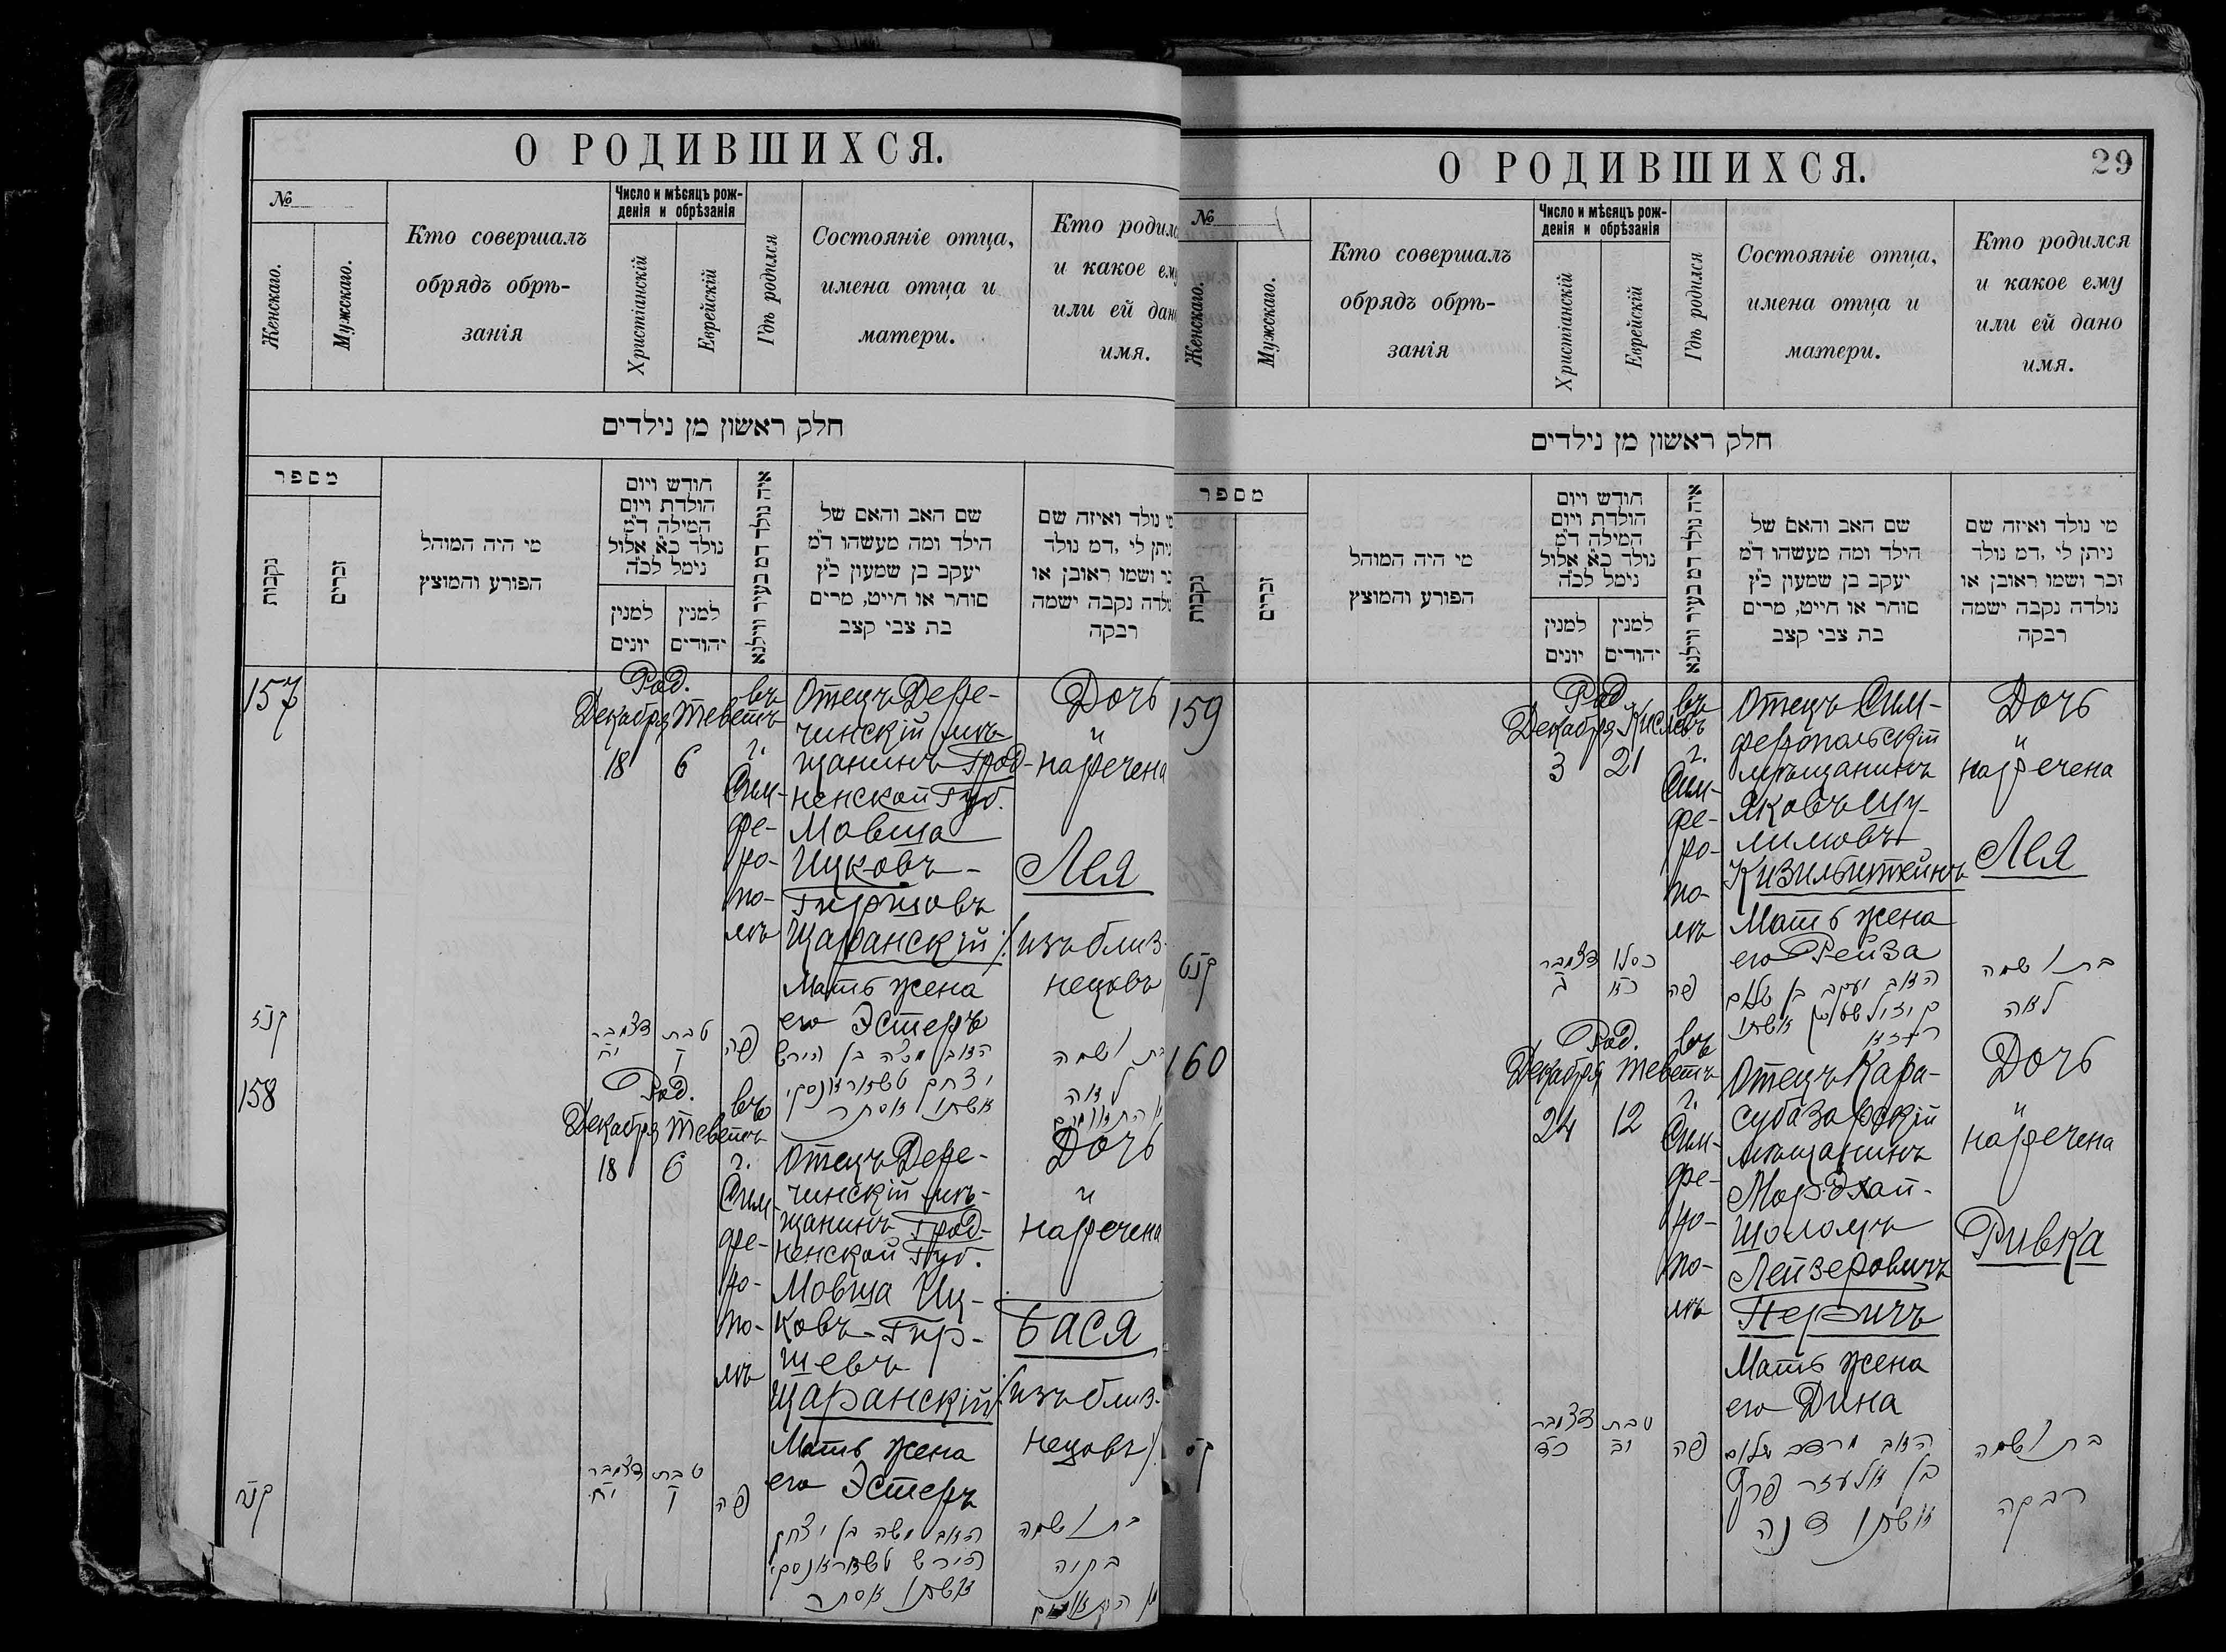 О РОДИВШИХСЯ.
№
Женскаго.
Мужскаго.
Кто совершалъ
обрядъ обрѣ-
занія
Число и мѣсяцъ рож-
денія и обрѣзанія
Христіанскій
Еврейскій
Гдѣ родился
Состояніе отца,
имена отца и
матери.
Кто родил
и какое ем
или ей дан
имя.
חלק ראשון מן נילדים
מספר
נקבות
זכרים
מי היה המוהל
הפורע והמוצץ
חודש ויום
הולדת ויום
המילה ד"מ
נולד כ"א אלול
נימל לכ"ה
למנין
יונים
למנין
יהודים
איה נולד דמ בעיר ווילנא
שם האב והאם של
הילד ומה מעשהו ד"מ
יעקב בן שמעון כ"ץ
סוחר או חייט, מרים
בת צבי קצב
מי נולד ואיזה שם
ניתן לי, דמ נולד
זכר ושמו ראובן או
נולדה נקבה ישמה
רבקה
157
Род.
Декабря Теветъ
18 6
въ
г.
Сим-
фе-
ро-
по-
лѣ
Отецъ Дере-
чинскій мѣ-
щанинъ Грод-
ненской Губ.
Мовша
Ицковъ-
Гиршовъ
Щаранскій
Мать жена
его Эстеръ
Дочь
и
наречена
Лея
/изъ близ-
нецовъ
קנז
דצמבר
יח
טבת
ו
פה
האב משה בן הירש
יצחק טשאראנסקי
אשתו אסתר
בת ושמה
לאה
158
Род.
Декабря Теветъ
18 6
въ
г.
Сим-
фе-
ро-
по-
лѣ
Отецъ Дере-
чинскій мѣ-
щанинъ Грод-
ненской Губ.
Мовша Иц-
ковъ-Гир-
шевъ
Щаранскій
Мать жена
его Эстеръ
Дочь
и
наречена
Бася
/изъ близ-
нецовъ/
קנח
דצמבר
יח
טבת
ו
פה
האב משה בן יצחק
הירש טשאראנסקי
אשתו אסתר
בת ושמה
בתיה
מן התאומים
О РОДИВШИХСЯ.
29
№
Женскаго.
Мужскаго.
Кто совершалъ
обрядъ обрѣ-
занія
Число и мѣсяцъ рож-
денія и обрѣзанія
Христіанскій
Еврейскій
Гдѣ родился
Состояніе отца,
имена отца и
матери.
Кто родился
и какое ему
или ей дано
имя.
חלק ראשון מן נילדים
מספר
נקבות
זכרים
מי היה המוהל
הפורע והמוצץ
חודש ויום
הולדת ויום
המילה ד"מ
נולד כ"א אלול
נימל לכ"ה
למנין
יונים
למנין
יהודים
איה נולד דמ בעיר ווילנא
שם האב והאם של
הילד ומה מעשהו ד"מ
יעקב בן שמעון כ"ץ
סוחר או חייט, מרים
בת צבי קצב
מי נולד ואיזה שם
ניתן לי, דמ נולד
זכר ושמו ראובן או
נולדה נקבה ישמה
רבקה
159
Род.
Декабря Кислевъ
3 21
въ
г.
Сим-
фе-
ро-
по-
лѣ
Отецъ Сим-
феропольскій
мѣщанинъ
Яковъ Шу-
лимовъ
Кизильштейнъ
Мать жена
его Рейза
Дочь
и
наречена
Лея
קנט
דצמבר
ג
כסלו
כא
פה
האב יעקב בן שלום
קיזילשטיין אשתו
רייזא
בת ושמה
לאה
160
Род.
Декабря Теветъ
24 12
въ
г.
Сим-
фе-
ро-
по-
лѣ
Отецъ Кара-
субазарскій
мѣщанинъ
Мордхай-
Шоломъ
Лейзеровичъ
Перчикъ
Мать жена
его Дина
Дочь
и
наречена
Ривка
קס
דצמבר
כד
טבת
יב
פה
האב מרדכי שלום
בן אלעזר
אשתו דינה
בת ושמה
רבקה